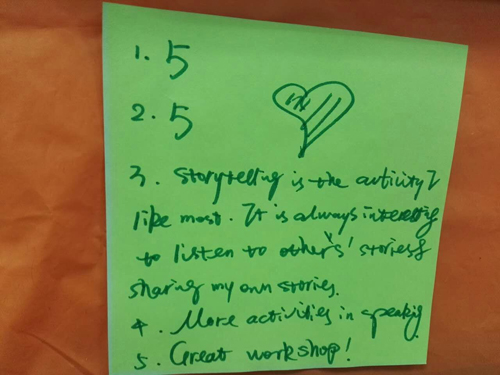 1. 5
2. 5
3. Storytelling is the activity I
like most. It is always interesting
to listen to others' stories &
sharing my own stories.
4. More activities in speaking.
5. Great workshop!